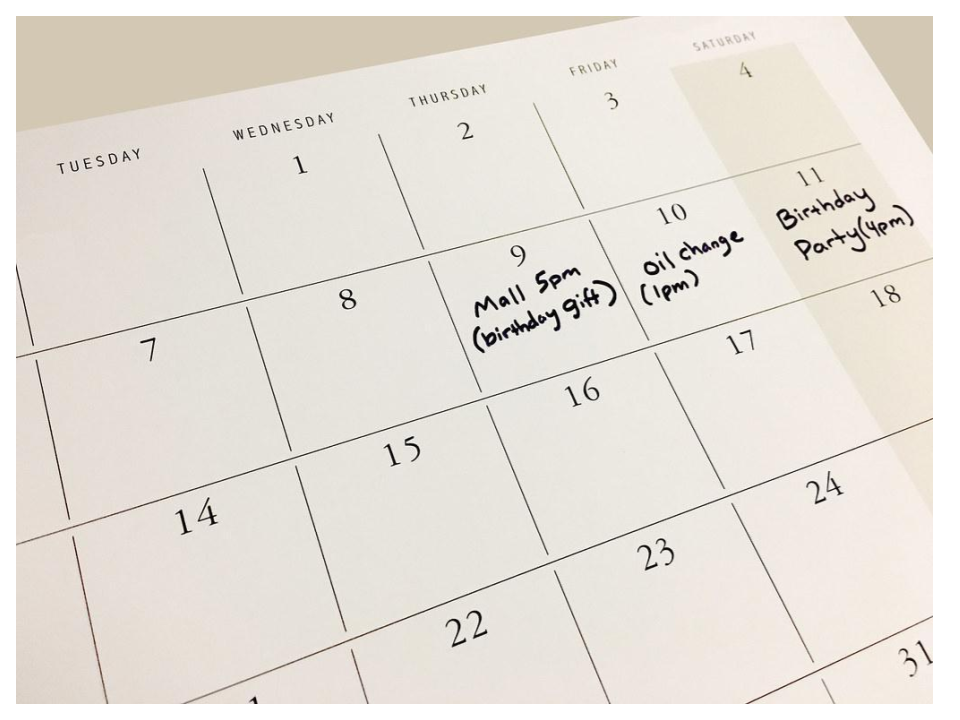 TUESDAY WEDNESDAY THURSDAY FRIDAY SATURDAY
1 2 3 4
7 8 9 10 11
Mall 5pm
(birthday gift)
Oil change
(1pm)
Birthday
Party(4pm)
14 15 16 17 18
22 23 24
31